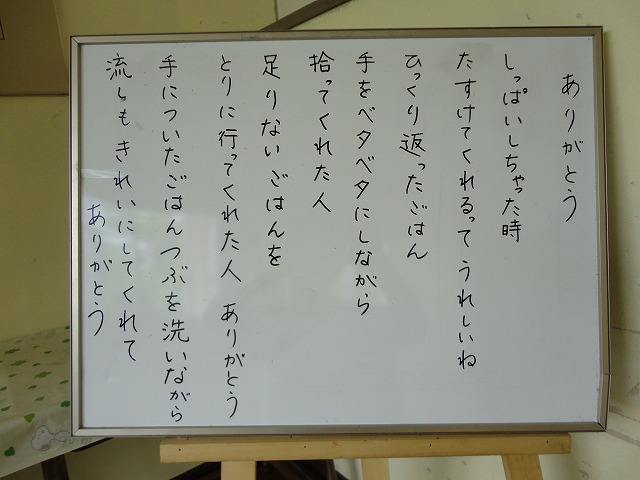 ありがとう
しっぱいしちゃった時
たすけてくれるって うれしいね
ひっくり返ったごはん
手をベタベタにしながら
拾ってくれた人
足りないごはんを
とりに行ってくれた人 ありがとう
手についたごはんつぶを洗いながら
流しもきれいにしてくれて
ありがとう